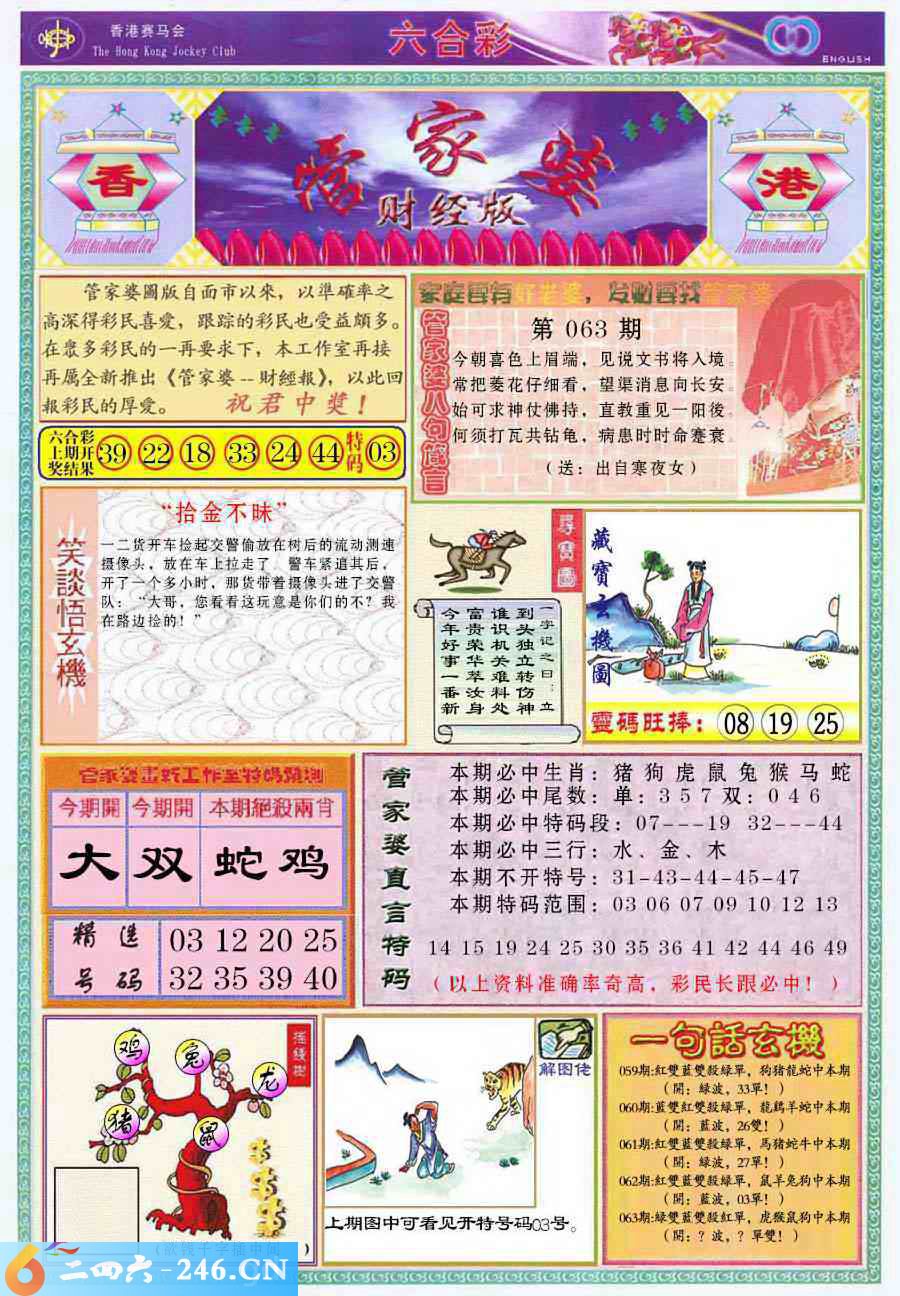 香港赛马会
The Hong Kong Jockey Club
六合彩
ENGLISH
香
管家婆
财经版
港
管家婆圖版自面市以來，以準確率之
高深得彩民喜愛，跟踪的彩民也受益頗多。
在眾多彩民的一再要求下，本工作室再接
再厲全新推出《管家婆--財經報》，以此回
報彩民的厚愛。 祝君中獎！
六合彩
上期开
奖结果
39 22 18 33 24 44 特码 03
家庭要有好老婆，发财要找管家婆
管家婆八句箴言
第 063 期
今朝喜色上眉端，见说文书将入境。
常把菱花仔细看，望渠消息向长安。
始可求神仗佛持，直教重见一阳後。
何须打瓦共钻龟，病患时时命蹇衰。
（送：出自寒夜女）
笑談悟玄機
“拾金不昧”
一二货开车捡起交警偷放在树后的流动测速
摄像头，放在车上拉走了，警车紧追其后，
开了一个多小时，那货带着摄像头进了交警
队：“大哥，您看看这玩意是你们的不？我
在路边捡的！”
尋寶圖
一字记之曰：立
到头独立转伤神
谁识机关难料处
富贵荣华萃汝身
今年好事一番新
藏寶玄機圖
靈碼旺捧： 08 19 25
管家婆画新工作室特码预测
今期開 今期開 本期絕殺兩肖
大 双 蛇鸡
精选
号码
03 12 20 25
32 35 39 40
管家婆直言特码
本期必中生肖：猪狗虎鼠兔猴马蛇
本期必中尾数：单：357双：046
本期必中特码段：07---19 32---44
本期必中三行：水、金、木
本期不开特号：31-43-44-45-47
本期特码范围：03 06 07 09 10 12 13
14 15 19 24 25 30 35 36 41 42 44 46 49
（以上资料准确率奇高，彩民长跟必中！）
摇錢樹
鸡
兔
龙
猪
鼠
解图佬
上期图中可看见开特号码03号。
一句話玄機
059期:紅雙藍雙殺綠單，狗猪龍蛇中本期
（開：綠波，33單！）
060期:藍雙紅雙殺綠單，龍鷄羊蛇中本期
（開：藍波，26雙！）
061期:紅雙藍雙殺綠單，馬猪蛇牛中本期
（開：綠波，27單！）
062期:紅雙藍雙殺綠單，鼠羊兔狗中本期
（開：藍波，03單！）
063期:綠雙藍雙殺紅單，虎猴鼠狗中本期
（開：？波，？單雙！）
二四六-246.CN